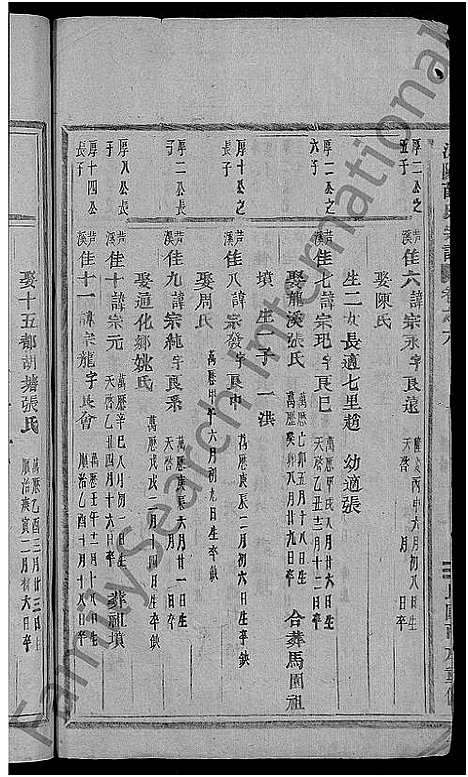 厚二公之五子
芦溪佳六諱宗永字良遠 隆慶丙申六月初八日生 天啓 月 日卒
娶陳氏
生二女長適七里趙 幼適張
厚二公之六子
芦溪佳七諱宗玘字良巳 萬歷甲戌八月廿六日生 天啓乙丑三月十二日卒
娶龍溪張氏 萬歷己卯五月十八日生 萬歷癸卯八月廿九日卒 合葬馬園祖
墳 生一子 一洪
厚十公之長子
芦溪佳八諱宗發字良中 萬歷庚辰二月初六日生
萬歷 年六月初九日生卒
娶周氏
厚二公長
芦溪佳九諱宗純字良系 萬歷庚辰六月廿一日生 天啓 月 日卒
娶通化鄉姚氏 萬歷戊戌二月十四日生卒
厚八公長子
芦溪佳十諱宗元 萬歷辛巳八月初一日生 天啓乙丑四月十六日卒 葬祖墳
厚十四公長子
芦溪佳十一諱宗龍字良會 萬歷壬午十一月十八日生 順治乙酉十月十八日卒
娶十五都胡塘張氏 萬歷乙酉三月廿三日生 順治庚寅二月初六日卒
FamilySearch International